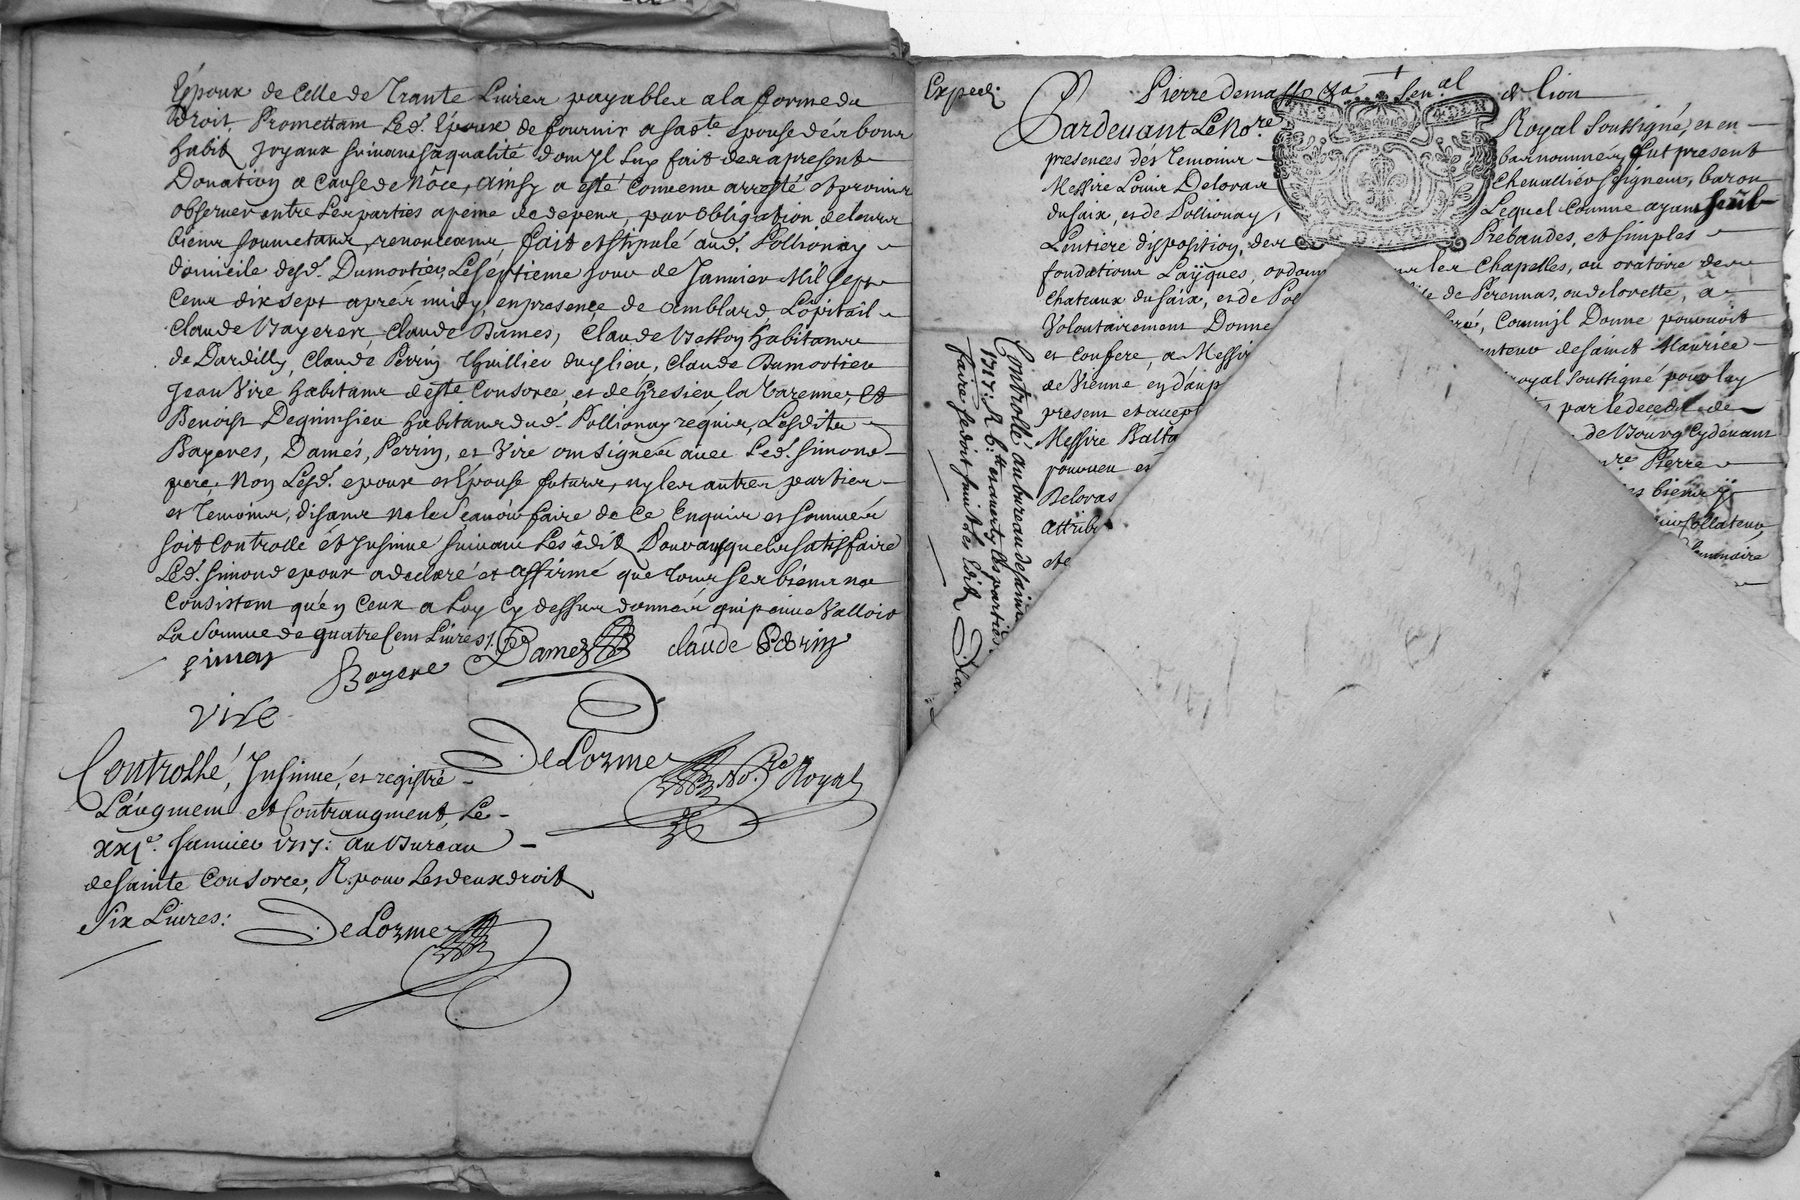 Époux de Celle de Trante Livres payables a la forme du
droit, Promettam Led. Epoux de fournir a sad.te Epouse dés bons
habit Joyaux suivant sa qualité dont Jl luy fait des apresent
Donation a Cause de Nôce, Ainsy a esté Convenu arresté et promis
observer entre Les parties a peine de depens, par obligation de leurs
biens soumetans, renonceans, fait et stipulé aud. Pollionay
domicile desd. Dumortier Le Septieme Jour de Janvier Mil sept
Cens dix sept aprés midy, en presence de Amblard Lopitail
Claude Bayeren, Claude Dames, Claude Besson habitans
de Dardilly, Claude Perrin Thuillier duylieu, Claude Dumortier
Jean Vire habitans de Ste Consorce, et de Gresieu la Varenne, et
Benoist Deguinsieu habitans dud. Pollionay requis, Lesdits
Bayeres, Damés, Perrin, et Vire ont signéz avec Led. Simond
pere, Non Lesd. epoux et Epouse futurs, ny les autres parties
et Temoins, disans ne le Sçavoir faire de ce Enquis et sommés
soit Controllé et Insinué suivant Les Édit Pour auxquels satisfaire
Led. Simond epoux a declaré et affirmé que tous ses biens ne
Consistent qu'en Ceux a Luy Cy dessus donnés qui peuve Valloir
La Somme de quatre Cent Livres
simon Bayere Dames claude Perrin
vire
DeLorme No.re Royal
Controllé, Insinué, et registré
L'augment et Contraugment, Le
xxj.e Janvier 1717: au Bureau
de Sainte Consorce, R. pour Les deux droit
Six Livres: DeLorme
Exped.
Pierre de Sen.al de lion
Pardevant Le No.re Royal Soussigné, et en
presences dés Temoins bas nommés, fut present
Messire Louis Deloras Chevallier Seigneur, baron
du Saix, et de Pollionay, Lequel Comme ayant seul
L'entiere disposition, des Prebandes, et simples
fondations Laÿques, ordon les Chapelles, ou oratoire des
Chateaux du Saix, et de Pol de Perennas, ou de lorette, a
Volontairement Donné Comm'jl Donne pouvoir
et confere, a Messir de Sainct Maurice
de Vienne en d'aup royal Soussigné pour luy
present et accept par le deced de
Messire Balta de Bourg Cydevant
pourveu et Pierre
Deloras biens
attrib Collateur,
Controllé au bureau de sainte
1717: R. 6.tt en avertÿ les parties
faire se doit suivt Les Edit